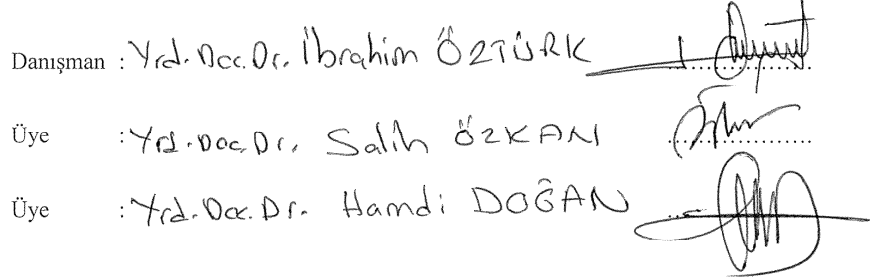 Danışman : Yrd. Doc. Dr. İbrahim ÖZTÜRK
Üye : Yrd. Doc. Dr. Salih ÖZKAN
Üye : Yrd. Doc. Dr. Hamdi DOĞAN